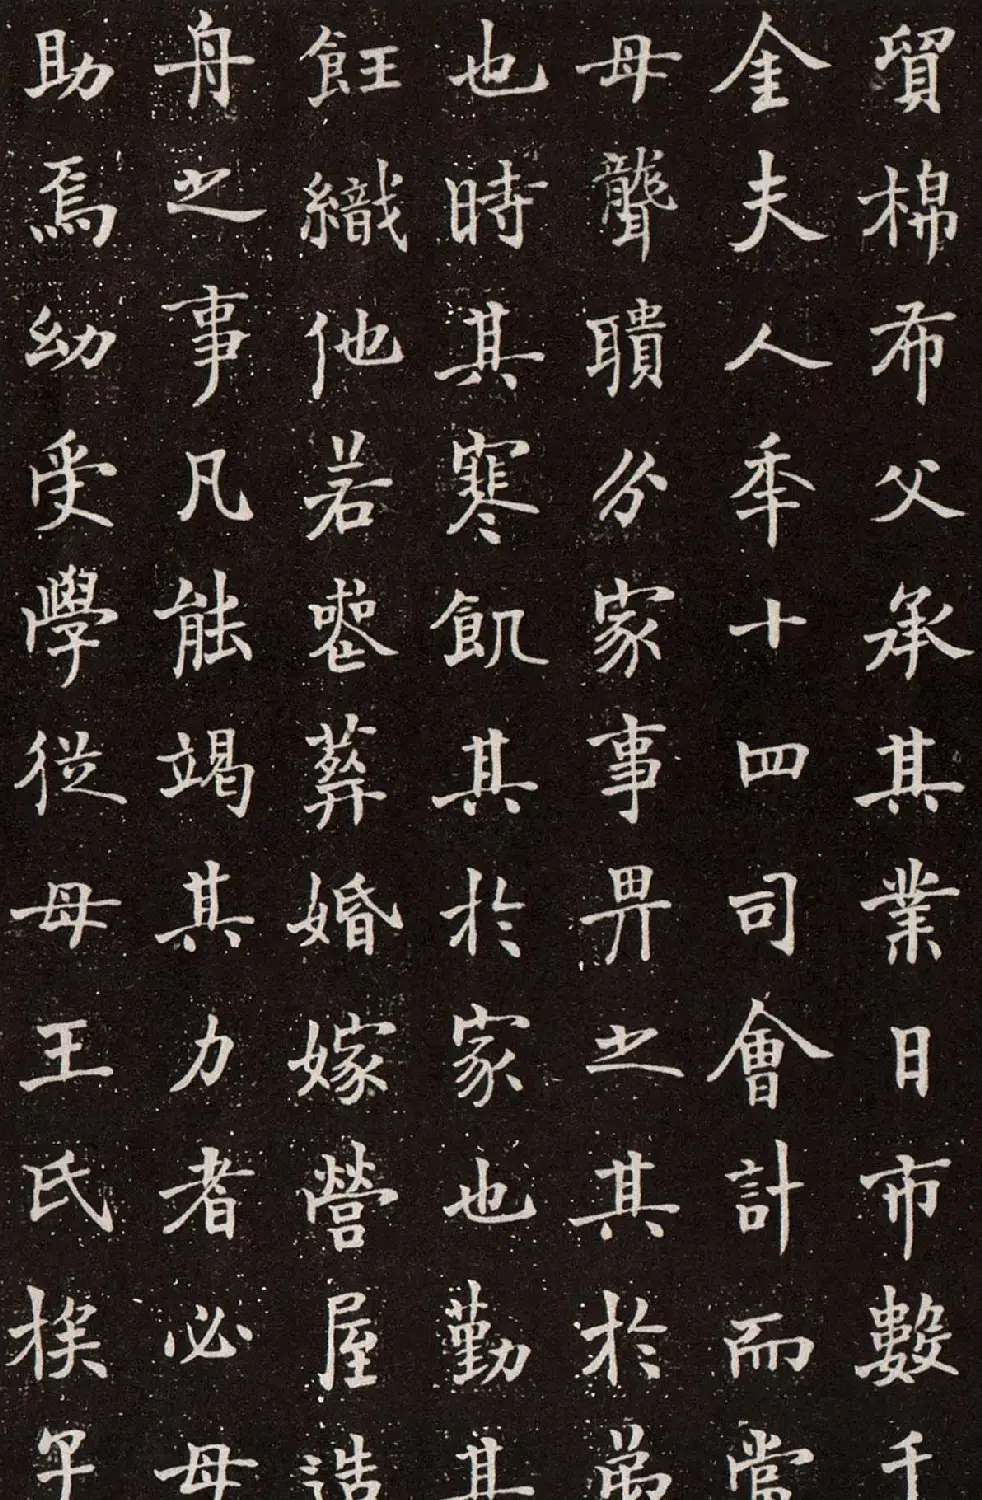 貿棉布父承其業日市數千
金夫人年十四司會計而當
母聾聵分家事畀之其於弟
也時其寒飢其於家也勤其
飪織他若喪葬婚嫁營屋造
舟之事凡能竭其力者必母
助焉幼受學從母王氏挨年